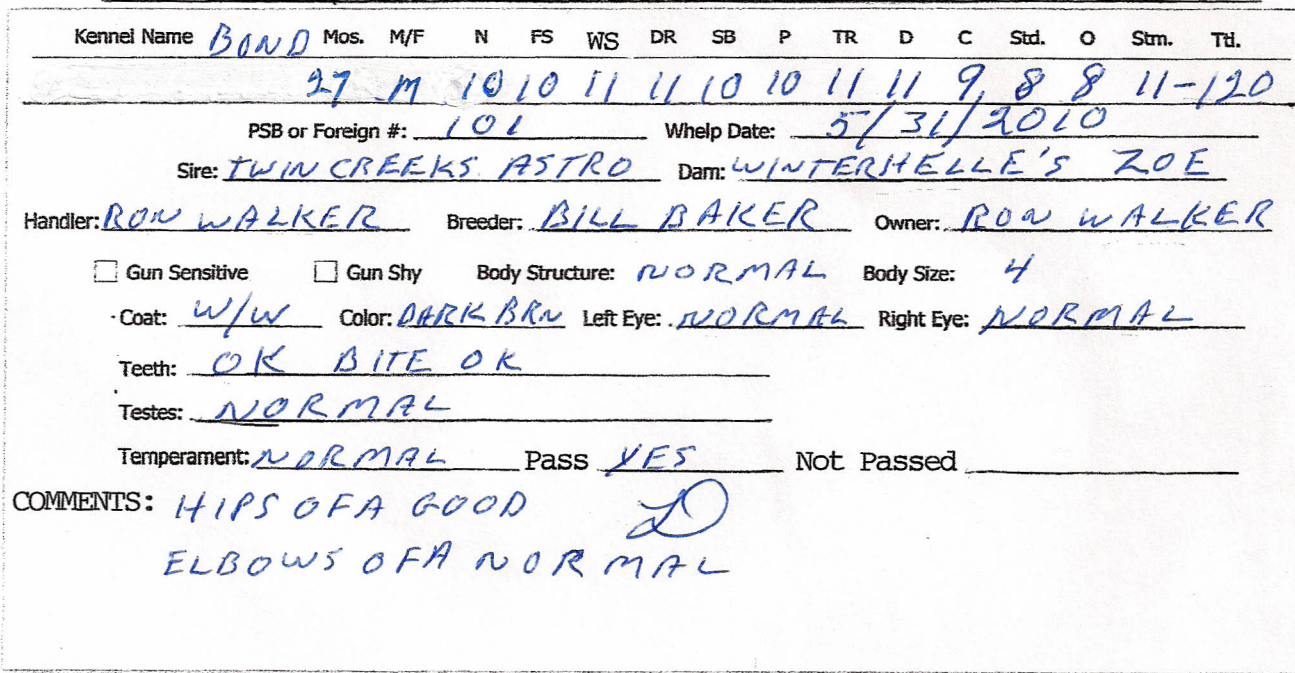 Kennel Name BOND Mos. M/F N FS WS DR SB P TR D C Std. O Stm. Ttl.
27 M 10 10 11 11 10 10 11 11 9 8 8 11-120
PSB or Foreign #: 101 Whelp Date: 5/31/2010
Sire: TWIN CREEKS ASTRO Dam: WINTERHELLE'S ZOE
Handler: RON WALKER Breeder: BILL BAKER Owner: RON WALKER
Gun Sensitive Gun Shy Body Structure: NORMAL Body Size: 4
Coat: W/W Color: DARK BRN Left Eye: NORMAL Right Eye: NORMAL
Teeth: OK BITE OK
Testes: NORMAL
Temperament: NORMAL Pass YES Not Passed
COMMENTS: HIPS OFA GOOD
ELBOWS OFA NORMAL